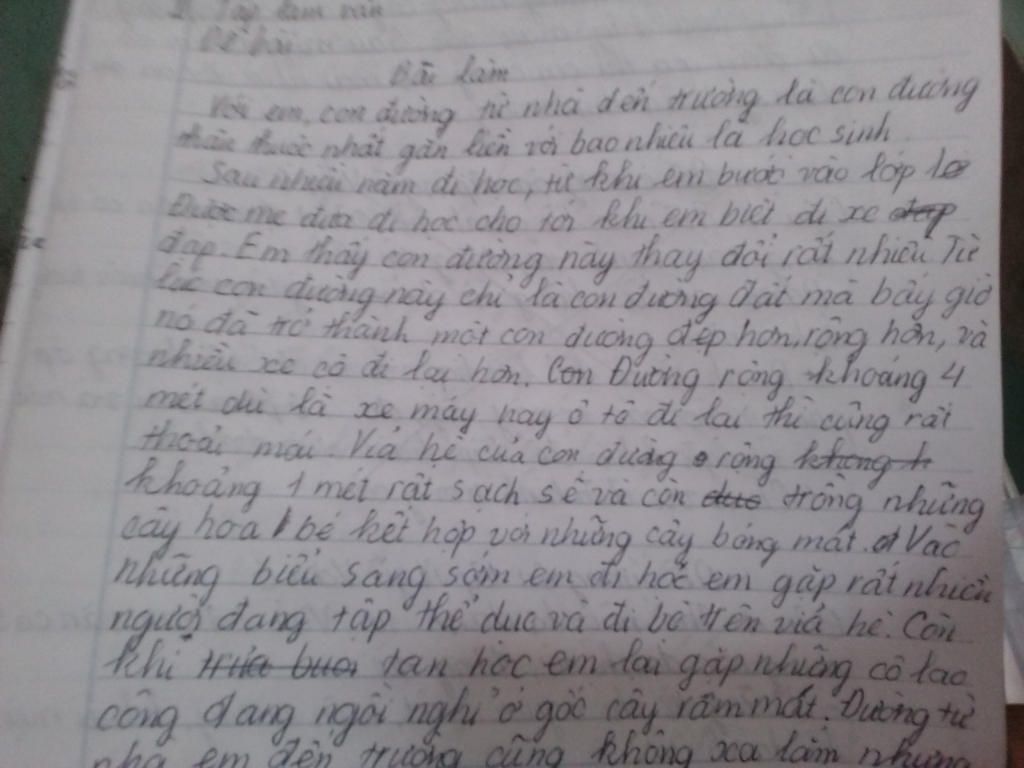 II. Tập làm văn
Đề bài
Bài làm
Với em, con đường từ nhà đến trường là con đường
thân thuộc nhất gắn liền với bao nhiêu là học sinh
Sau nhiều năm đi học, từ khi em bước vào lớp
Được mẹ đưa đi học cho tới khi em biết đi xe đạp
đạp. Em thấy con đường này thay đổi rất nhiều Từ
lúc con đường này chỉ là con đường đất mà bây giờ
nó đã trở thành một con đường đẹp hơn, rộng hơn, và
nhiều xe cộ đi lại hơn. Con Đường rộng khoảng 4
mét dù là xe máy hay ô tô đi lại thì cũng rất
thoải mái. Vỉa hè của con đường rộng
khoảng 1 mét rất sạch sẽ và còn trồng những
cây hoa bé kết hợp với những cây bóng mát. Vào
những buổi sáng sớm em đi học em gặp rất nhiều
người đang tập thể dục và đi bộ trên vỉa hè. Còn
khi tan học em lại gặp những cô lao
công đang ngồi nghỉ ở gốc cây râm mát. Đường từ
nhà em đến trường cũng không xa lắm nhưng